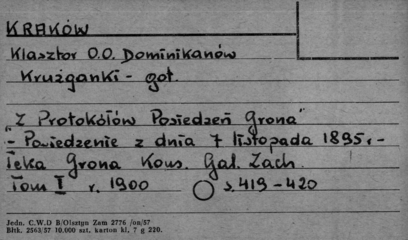 KRAKÓW
Klasztor O.O. Dominikanów
Krużganki - got.
"Z Protokółów Posiedzeń Grona"
"- Posiedzenie z dnia 7 listopada 1895 r. -
Teka Grona Kons. Gal. Zach.
Tom I r. 1900 s. 419-420
Jedn. C.W.D B/Olsztyn Zam 2776 /on/57
Bltk. 2563/57 10.000 szt. karton kl. 7 g 220.